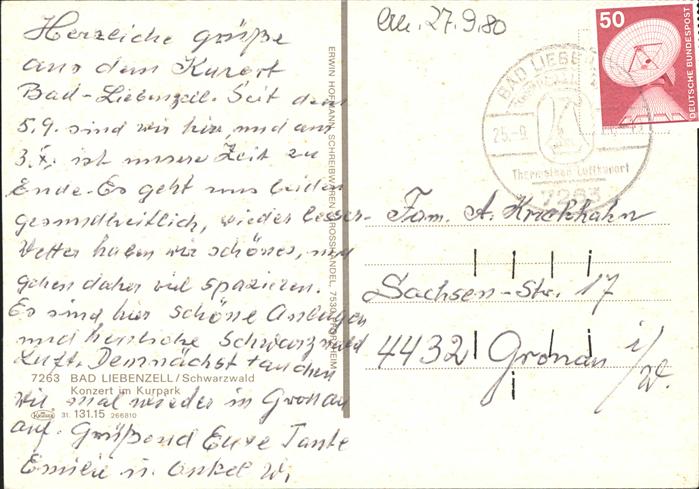 Herzliche grüße
aus dem Kurort
Bad-Liebenzell. Seit dem
5.9. sind wir hier, und am
3.X. ist unsere Zeit zu
Ende. Es geht uns beiden
gesundheitlich, wieder besser.
Wetter haben wir schönes, und
gehen daher viel spazieren.
Es sind hier schöne Anlagen
und herrliche Schwarzwald
Luft. Demnächst tauchen
7263 BAD LIEBENZELL/Schwarzwald
Konzert im Kurpark
wir mal wieder in Gronau
31. 131.15 266810
auf. Grüßend Eure Tante
Emilie u. onkel W.
ERWIN HOFMANN, SCHREIBWAREN GROSSHANDEL, 7530 PFORZHEIM
27.9.80
50
DEUTSCHE BUNDESPOST
BAD LIEBENZELL
25.-9
Thermalbad Luftkurort
7263
Fam. A. Krickhahn
Sachsen-Str. 17
4432 Gronau i/W.